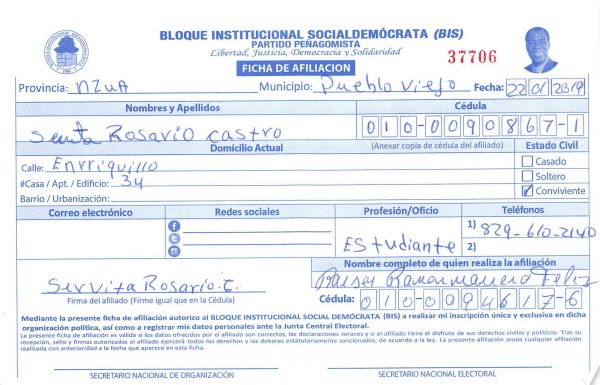 BLOQUE INSTITUCIONAL SOCIALDEMÓCRATA (BIS)
PARTIDO PEÑAGOMISTA
Libertad, Justicia, Democracia y Solidaridad
37706
FICHA DE AFILIACION
Provincia: AZUA Municipio: Pueblo Viejo Fecha: 22/01/2019
Nombres y Apellidos Cédula
Rosario Castro 010-0090867-1
Domicilio Actual (Anexar copia de cédula del afiliado) Estado Civil
Calle: Enrriquillo Casado
#Casa / Apt. / Edificio: 34 Soltero
Barrio / Urbanización: Conviviente
Correo electrónico Redes sociales Profesión/Oficio Teléfonos
1) 829-610-2140
EStudiante 2)
Nombre completo de quien realiza la afiliación
Servita Rosario. C. Ramon
Firma del afiliado (Firme igual que en la Cédula) Cédula: 010-0094617-6
Mediante la presente ficha de afiliación autorizo al BLOQUE INSTITUCIONAL SOCIAL DEMÓCRATA (BIS) a realizar mi inscripción única y exclusiva en dicha
organización política, así como a registrar mis datos personales ante la Junta Central Electoral.
La presente ficha de afiliación es válida si los datos ofrecidos por el afiliado son correctos, las declaraciones veraces y si el afiliado tiene el disfrute de sus derechos civiles y políticos. Tras su
recepción, sello y firmas autorizadas el afiliado ejercerá todos los derechos y los deberes estatutariamente sancionados, de acuerdo a la ley. La presente afiliación anula cualquier afiliación
realizada con anterioridad a la fecha que aparece en esta ficha.
SECRETARIO NACIONAL DE ORGANIZACIÓN SECRETARIO NACIONAL ELECTORAL